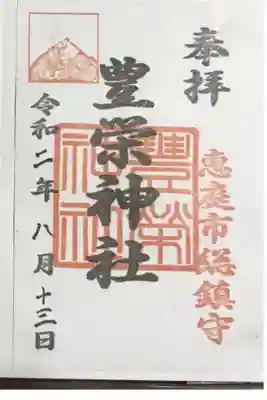 奉拝
恵庭市総鎮守
豊栄神社
豊栄神社
令和二年八月十三日